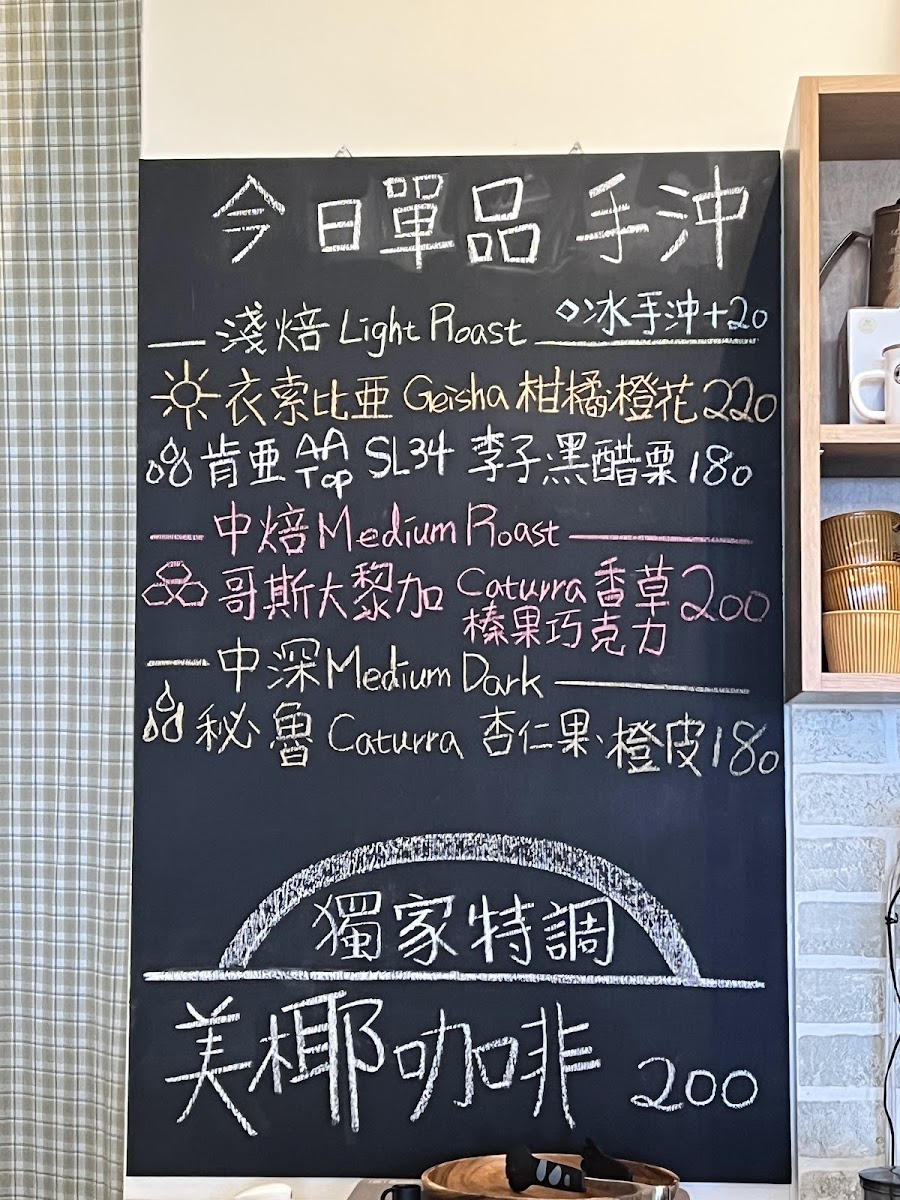 今日單品手沖
淺焙 Light Roast ◇冰手沖+20
衣索比亞 Geisha 柑橘、橙花 220
肯亞 AA Top SL34 李子、黑醋栗 180
中焙 Medium Roast
哥斯大黎加 Caturra 香草 200
榛果巧克力
中深 Medium Dark
秘魯 Caturra 杏仁果、橙皮 180
獨家特調
美椰咖啡 200